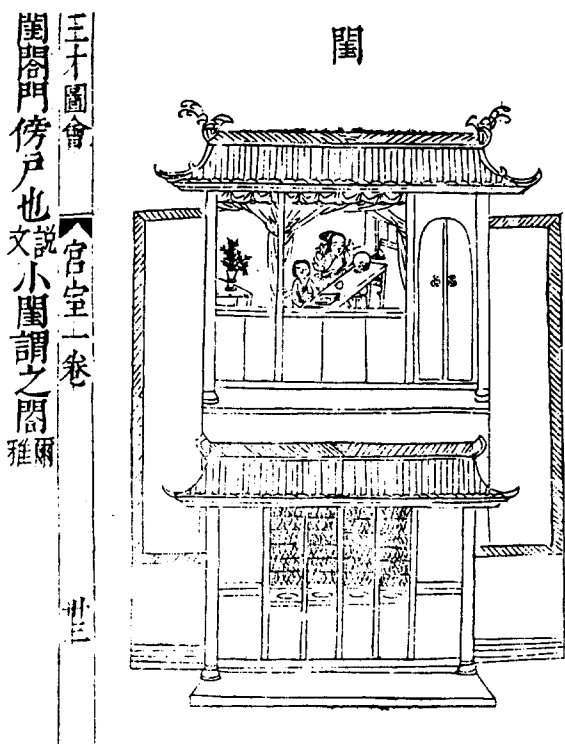 閨
三才圖會 宮室一卷 卅三
閨閤門傍戶也說文小閨謂之閤爾雅